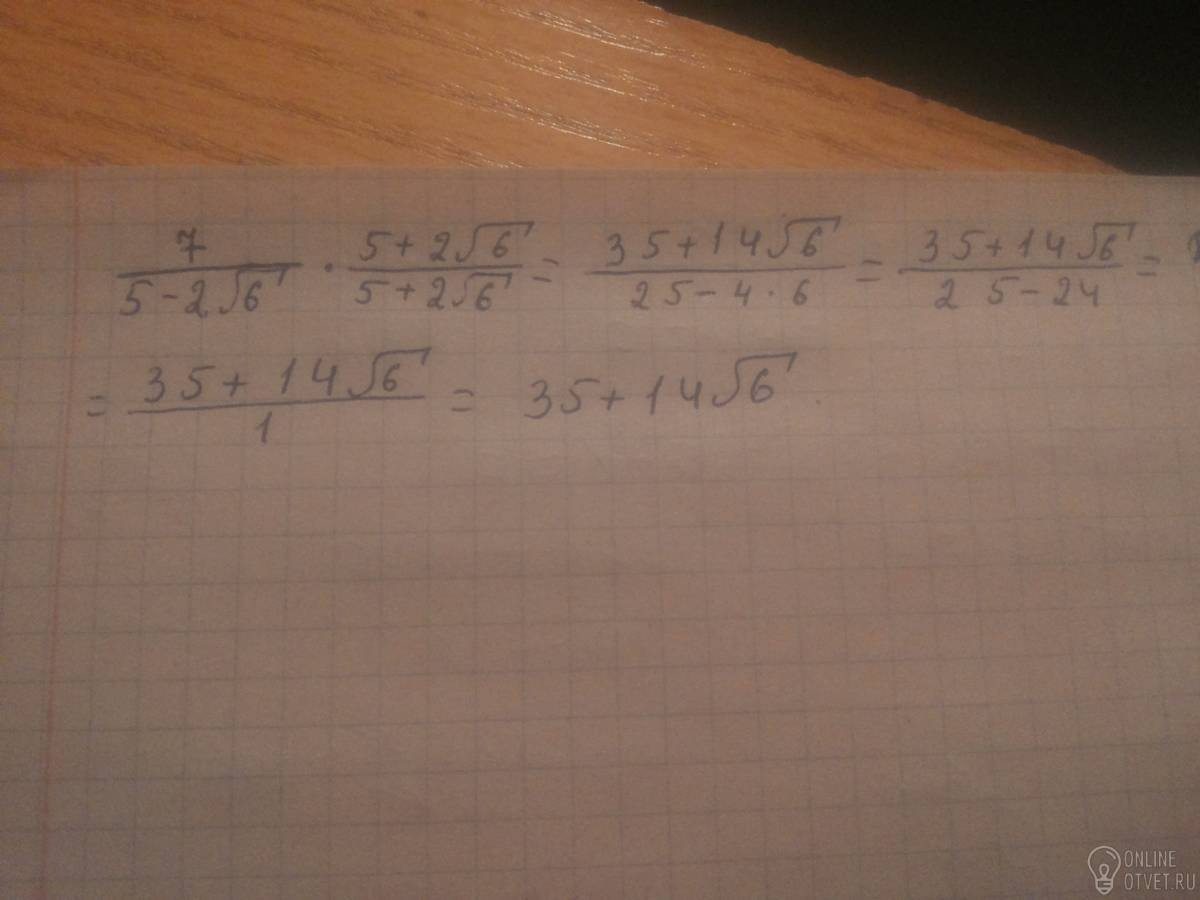 7/(5-2√6) · (5+2√6)/(5+2√6) = (35+14√6)/(25-4·6) = (35+14√6)/(25-24) =
= (35+14√6)/1 = 35+14√6
ONLINE
OTVET.RU